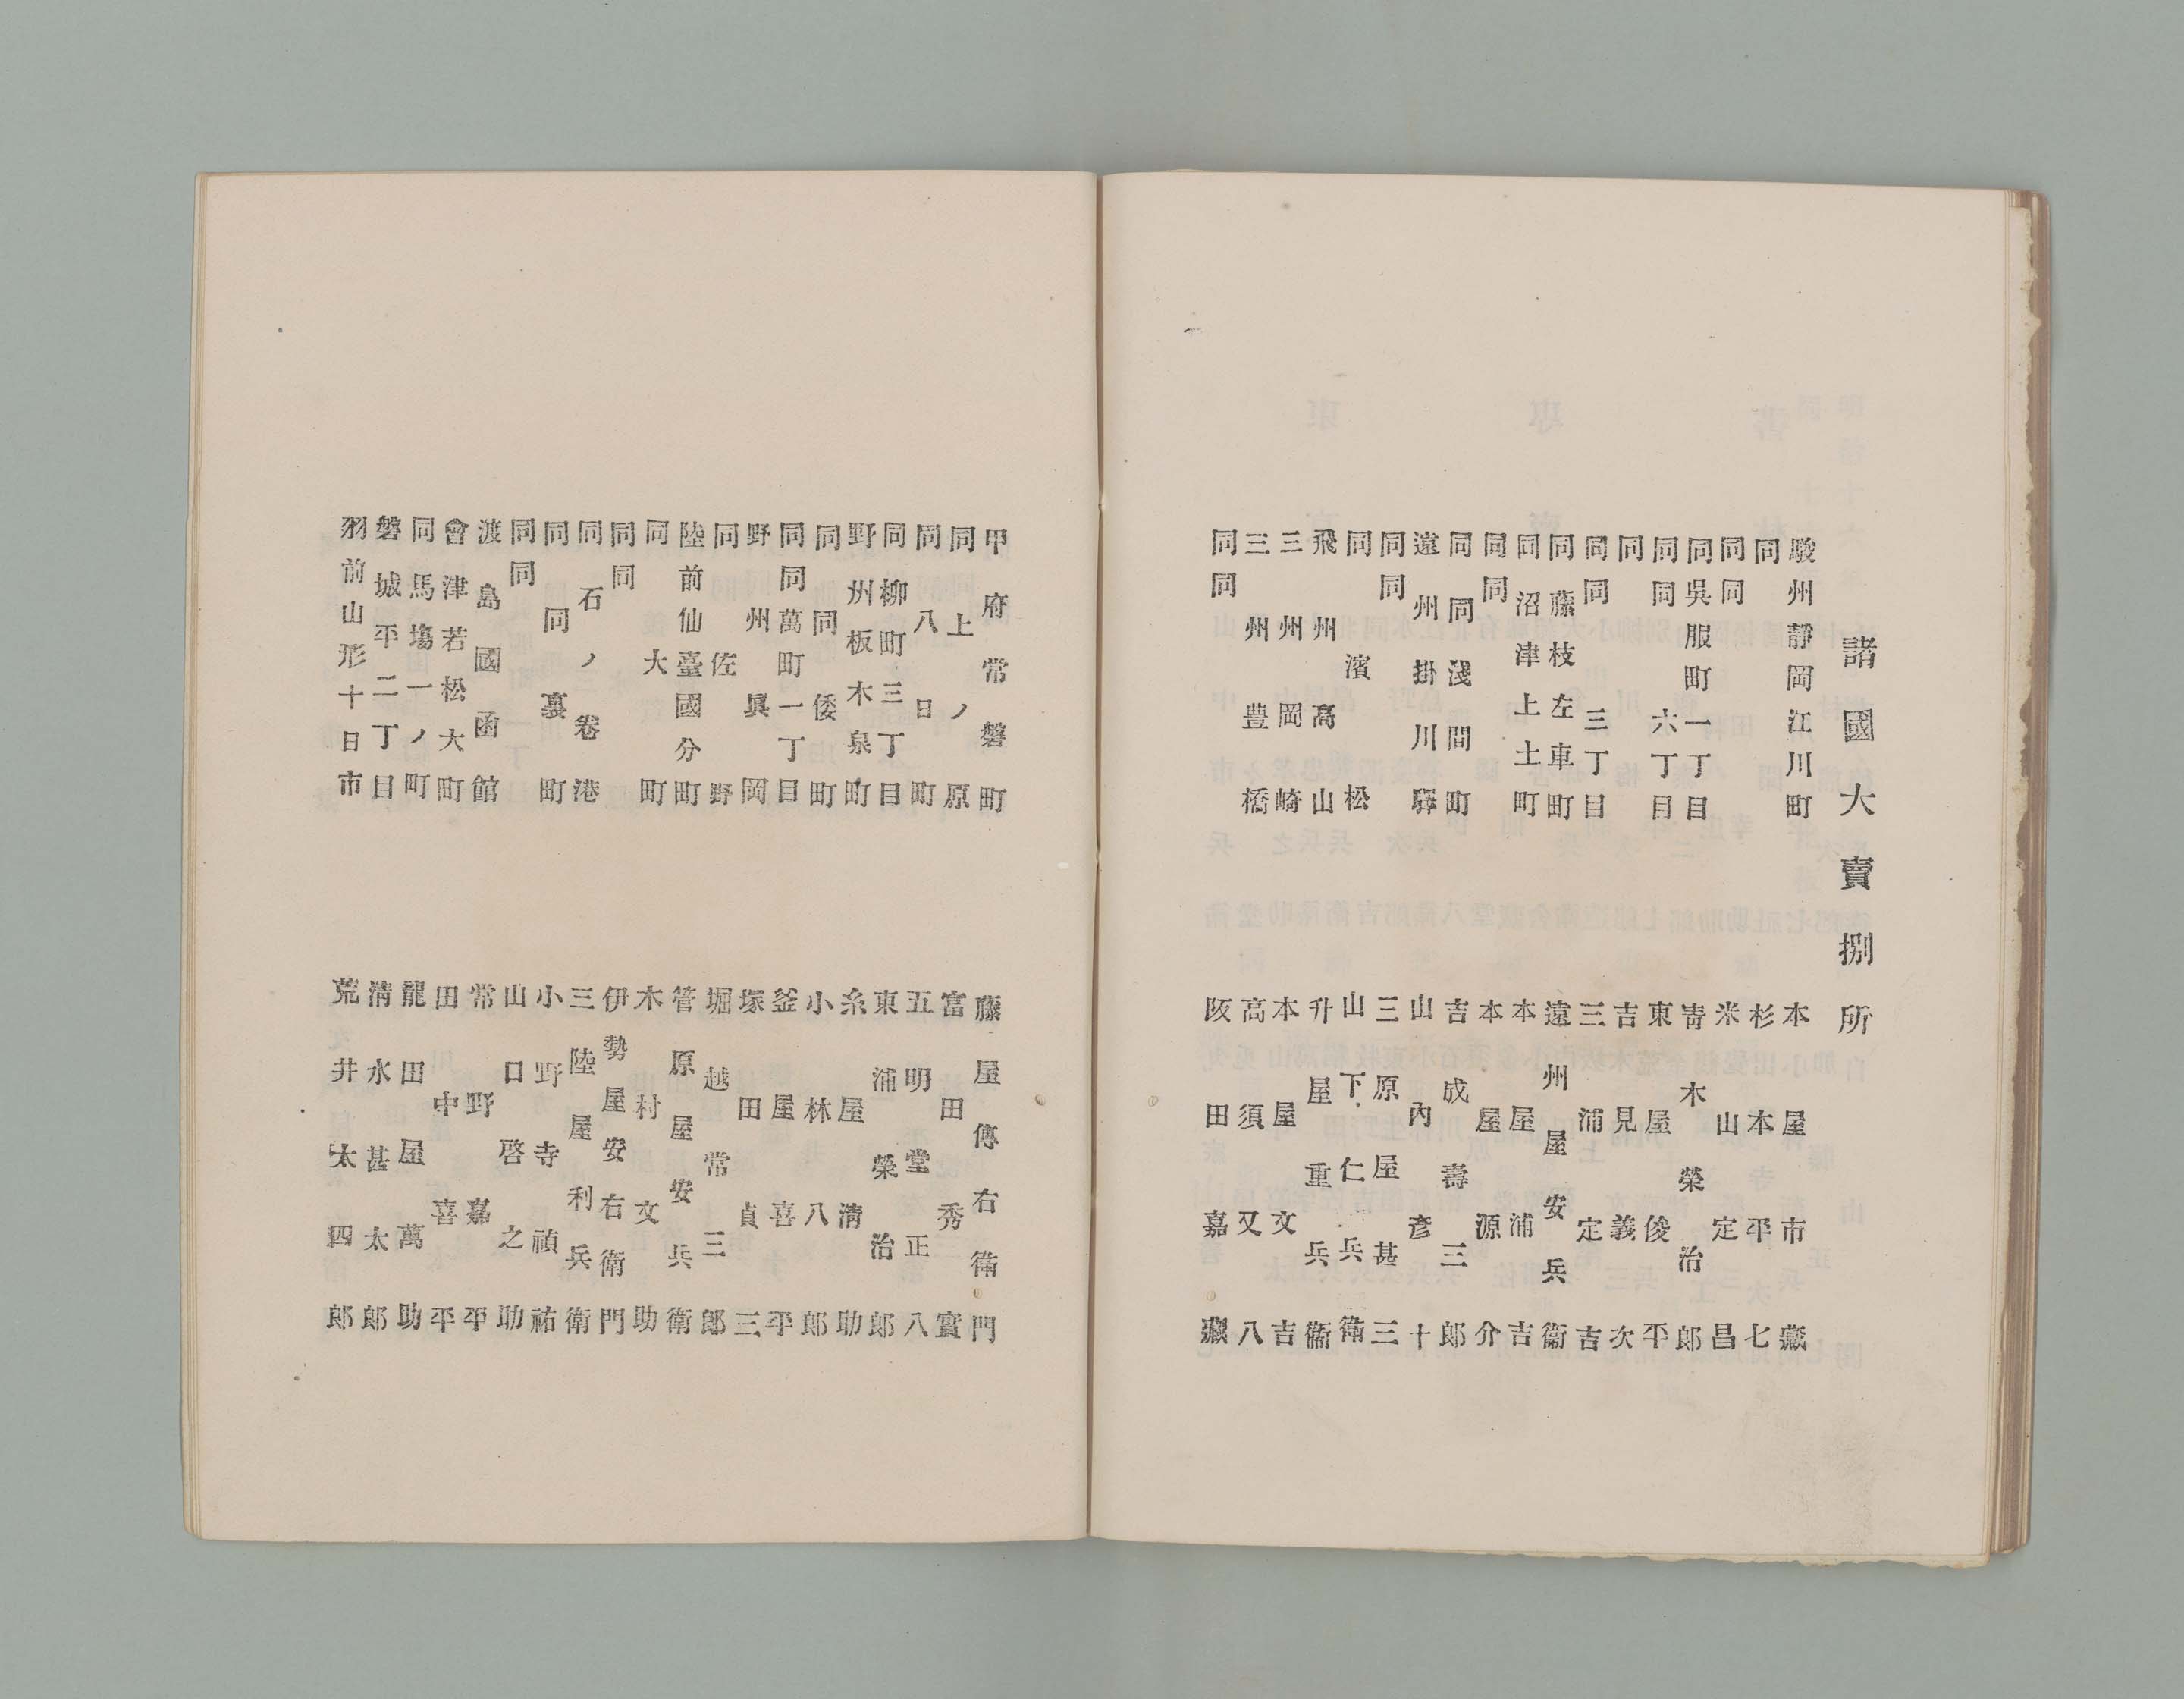 諸國大賣捌所
駿州靜岡江川町 本屋市藏
同 杉本平七
同同 米山定昌
同吳服町一丁目 靑木榮治郎
同同六丁目 東屋俊平
同 吉見義次
同同三丁目 三浦定吉
同藤枝左車町 遠州屋安兵衞
同沼津上土町 本屋浦吉
同同 本屋源介
同同淺間町 吉成壽三郎
遠州掛川驛 山內彥十
同同 三原屋甚三
同濱松 山下仁兵衞
飛州高山 升屋重兵衞
三州岡崎 本屋文吉
三州豊橋 高須又八
同同 阪田嘉藏
甲府常磐町 藤屋傳右衞門
同上ノ原 富田秀實
同八日町 五明堂正八
同柳町三丁目 東浦榮治郎
野州板木泉町 糸屋淸助
同同倭町 小林八郎
同同萬町一丁目 釜屋喜平
野州眞岡 塚田貞三
同佐野 堀越常三郎
陸前仙臺國分町 管原屋安兵衞
同大町 木村文助
同同 伊勢屋安右衞門
同石ノ卷港 三陸屋利兵衞
同同裏町 小野寺禎祐
同同 山口啓之助
渡島國函館 常野嘉平
會津若松大町 田中喜平
同馬塲一ノ町 龍田屋萬助
磐城平二丁目 淸水甚太郎
羽前山形十日市 荒井太四郎